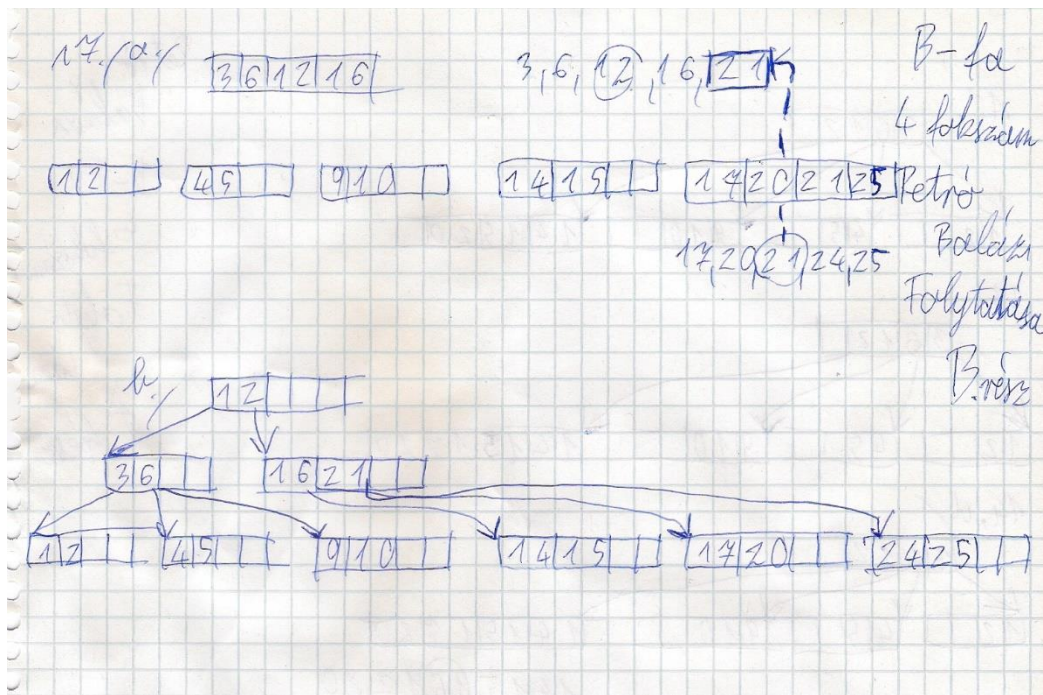 17./a./ 3 6 12 16 3, 6, 12, 16, 21 B-fa
4 fokszám
1 2 4 5 9 10 14 15 17 20 21 25 Petró
Balázs
17, 20, 21, 24, 25
Folytatása
B. rész
b./ 12
3 6 16 21
1 2 4 5 9 10 14 15 17 20 24 25